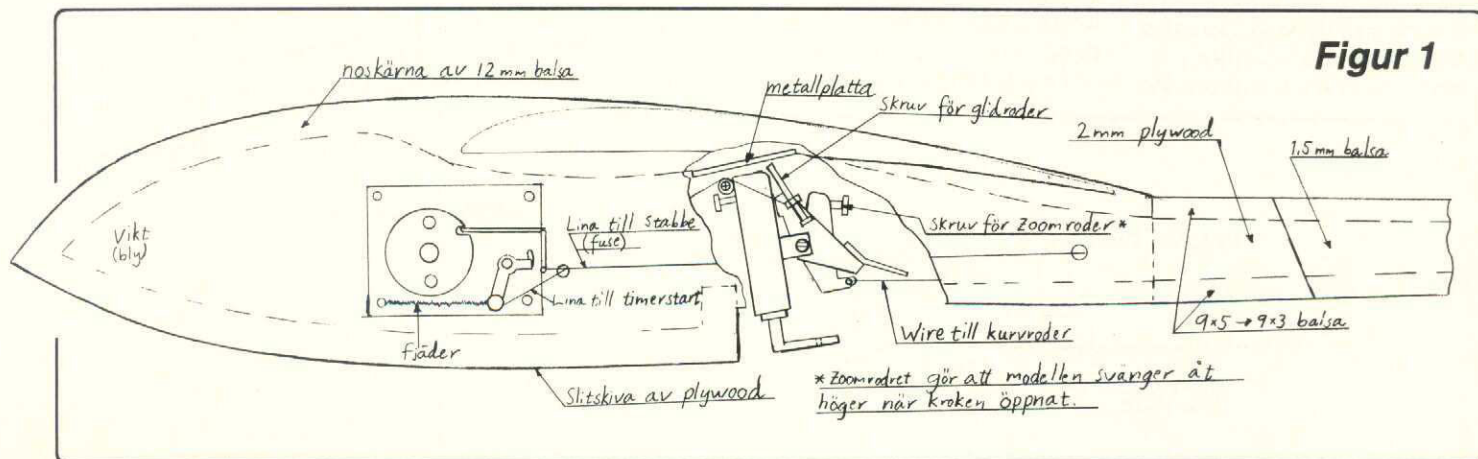 Figur 1
noskärna av 12 mm balsa
metallplatta
skruv för glidroder
2 mm plywood
1.5 mm balsa
Vikt
(bly)
Lina till stabbe
(fuse)
skruv för Zoomroder *
Lina till timerstart
fjäder
Wire till kurvroder
9×5 → 9×3 balsa
Slitskiva av plywood
* Zoomrodret gör att modellen svänger åt
höger när kroken öppnat.